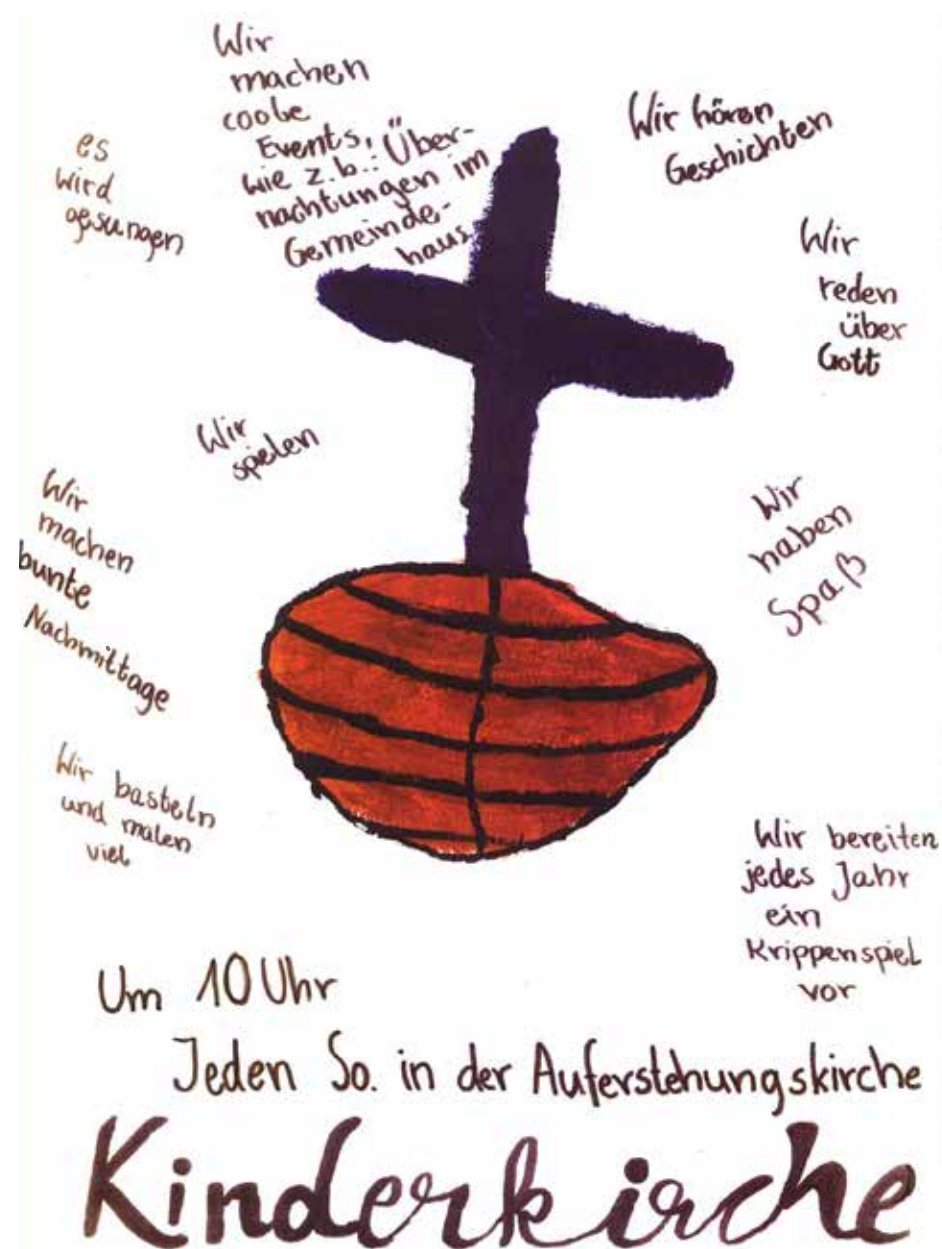 Wir
machen
coole
Events,
wie z.b.: Über-
nachtungen im
Gemeinde-
haus.
es
wird
gesungen
Wir hören
Geschichten
Wir
reden
über
Gott
Wir
spielen
Wir
machen
bunte
Nachmittage
Wir
haben
Spaß
Wir basteln
und malen
viel
Wir bereiten
jedes Jahr
ein
Krippenspiel
vor
Um 10 Uhr
Jeden So. in der Auferstehungskirche
Kinderkirche